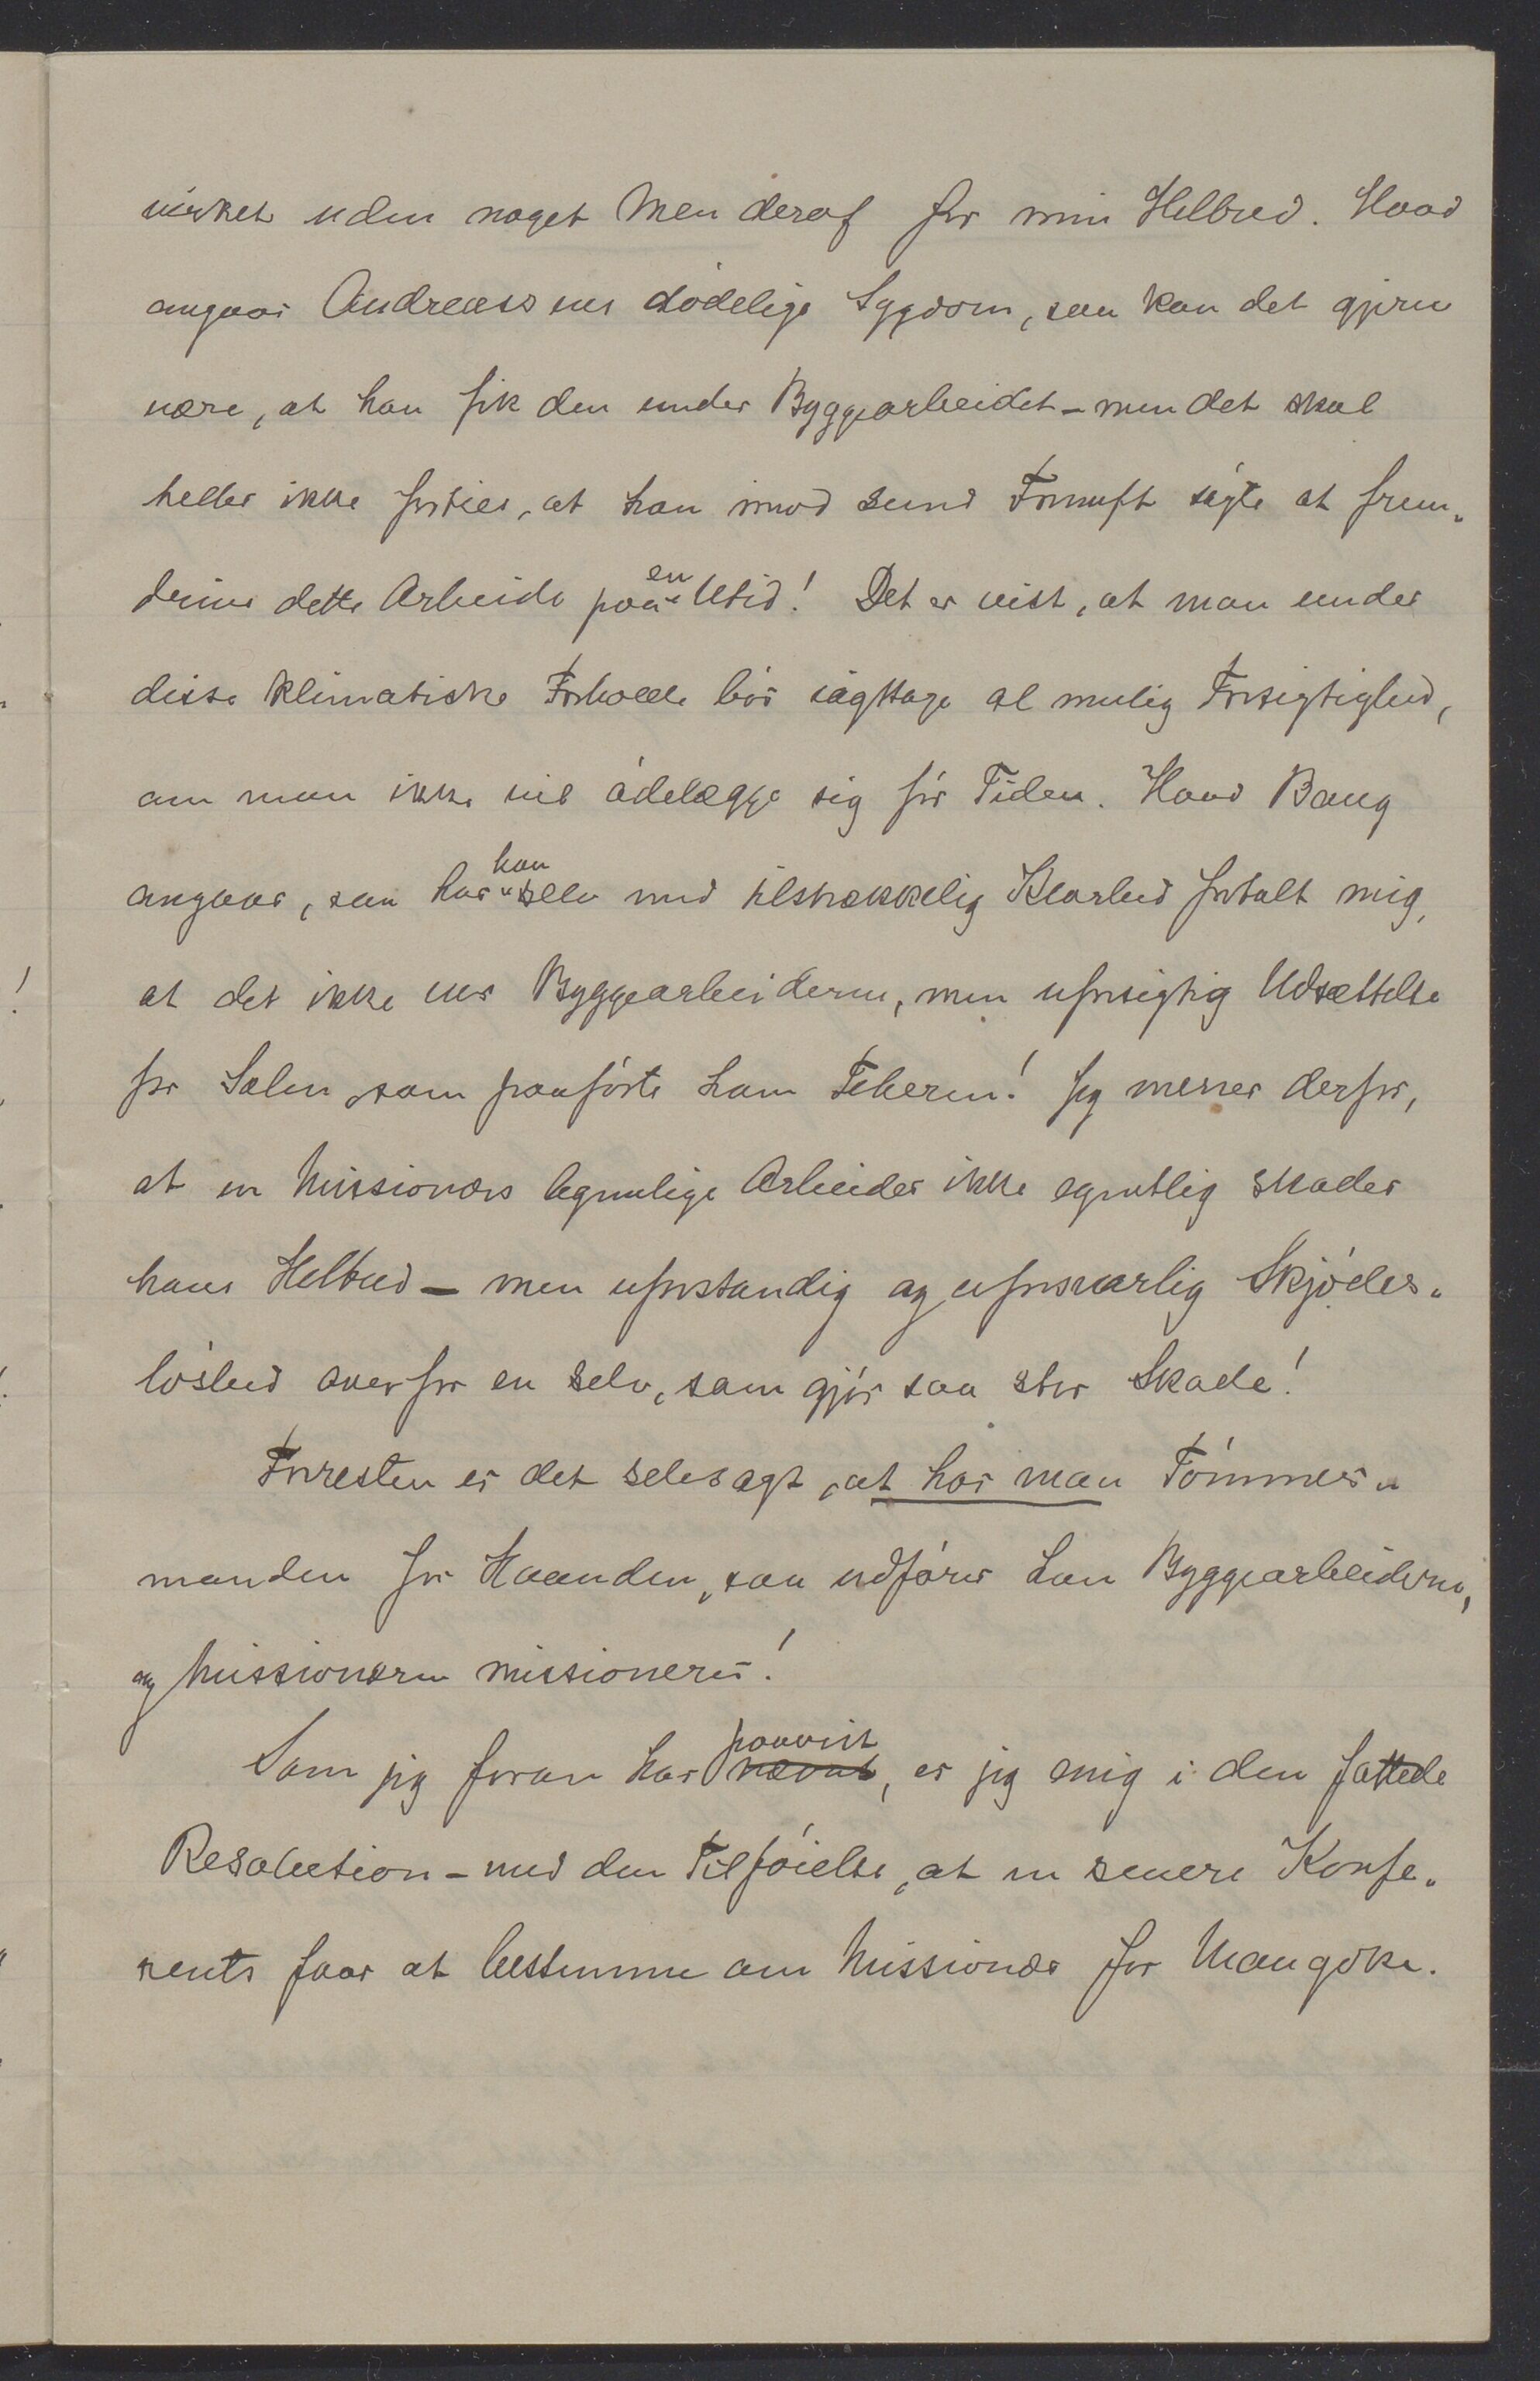 virket uden noget Men deraf for min Helbred. Hvad
angaar Andreassens dødelige Sygdom, saa kan det gjerne
være, at han fik den under Byggearbeidet – men det skal
heller ikke forties, at han imod sund Fornuft søgte at frem„
drive dette Arbeide paa en Utid! Det er vist, at man under
disse klimatiske Forholde bør iagttage al mulig Forsigtighed,
om man ikke vil ødelægge sig før Tiden. Hvad Bang
angaar, saa har han selv med tilstrækkelig Klarhed fortalt mig,
at det ikke var Byggearbeiderne, men uforsigtig Udsættelse
for Solen, som paaførte ham Feberen! Jeg mener derfor,
at en Missionærs legemlige Arbeider ikke egentlig skader
hans Helbred – men uforstandig og uforsvarlig Skjødes„
løshed overfor en selv, som gjør saa stor Skade!
Forresten er det selvsagt, at har man Tømmer„
manden for Haanden, saa udfører han Byggearbeiderne,
og Missionæren missionerer!
Som jeg foran har paavist nævnt, er jeg enig i den fattede
Resolution – med den Tilføielse, at en senere Konfe„
rents faar at bestemme om Missionær for Mangoke.